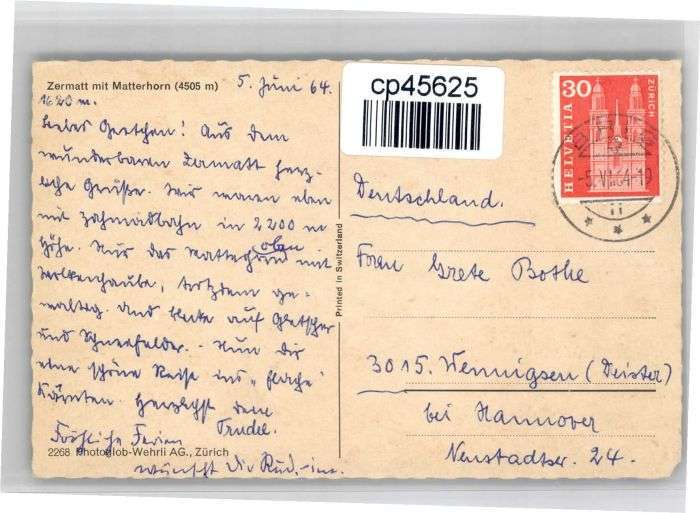 Zermatt mit Matterhorn (4505 m)
5. Juni 64.
1620 m.
Liebes Gretchen! Aus dem
wunderbaren Zermatt herz-
liche Grüße. Wir waren eben
mit Zahnradbahn in 2200 m
Höhe. Nur das Matterhorn oben mit
Wolkenhaube, trotzdem ge-
waltig. Und Blicke auf Gletscher
und Schneefelder. - Nun Dir
eine schöne Reise ins "flache"
Kärnten. Herzlichst Deine
Trudel.
Fröhliche Ferien
wünscht Dir
2268 Photoglob-Wehrli AG., Zürich
Printed in Switzerland
cp45625
30
HELVETIA
ZÜRICH
-5.VI.64-19
Deutschland.
Frau Grete Bothe
3015. Wennigsen (Deister)
bei Hannover
Neustadtstr. 24.